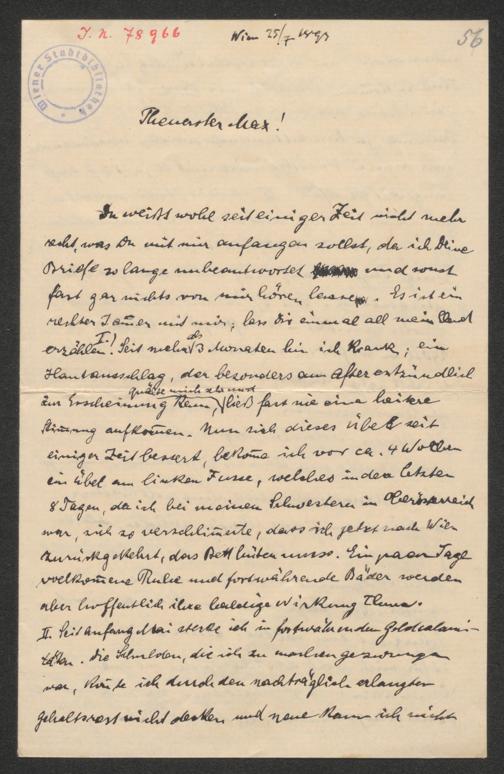 J. N. 78966
Wien 25/7 1893
56
Wiener Stadtbibliothek
Theuerster Max!
Du weißt wohl seit einiger Zeit nicht mehr
recht, was Du mit mir anfangen sollst, da ich Deine
Briefe so lange unbeantwortet und sonst
fast gar nichts von mir hören lasse. Es ist ein
rechter Jammer mit mir; lass Dir einmal all mein Leid
erzählen! I. Seit mehr als 3 Monaten bin ich krank; ein
Hautausschlag, der besonders am After entzündlich
zur Erscheinung kam, quälte mich als und ließ fast nie eine heitere
Stimung aufkomen. Nun sich dieses Übel seit
einiger Zeit bessert, bekome ich vor ca. 4 Wochen
ein Übel am linken Fusse, welches in den letzten
8 Tagen, da ich bei meinen Schwestern in Oberösterreich
war, sich so verschlimerte, dass ich jetzt nach Wien
zurückgekehrt, das Bett hüten muss. Ein paar Tage
vollkomene Ruhe und fortwährende Bäder werden
aber hoffentlich ihre baldige Wirkung thun.
II. Seit anfang Mai stecke ich in fortwährenden Geldcalami-
täten. Die Schulden, die ich zu machen gezwungen
war, konte ich durch den nachträglich erlangten
Gehaltsrest nicht decken und neue kann ich nicht